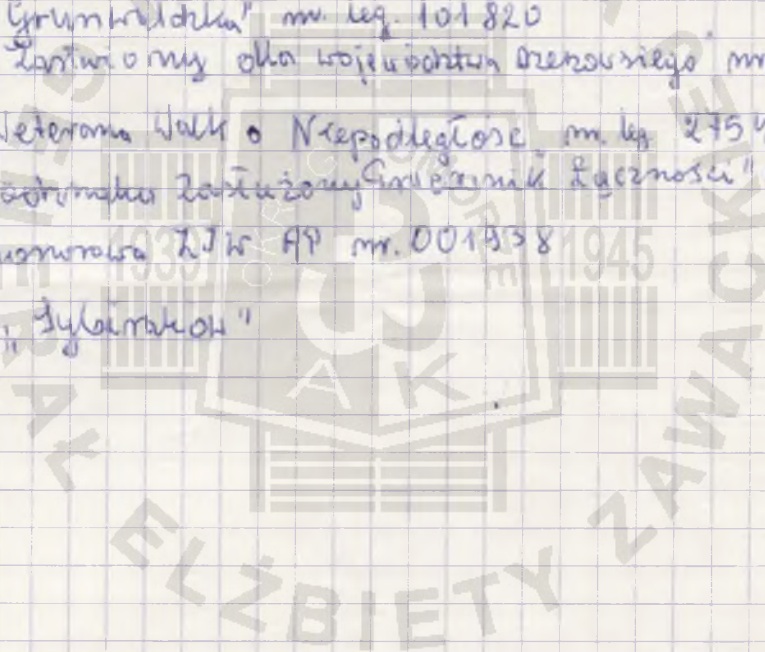 Grunwaldzka" nr. leg. 101820
Zasłużony dla województwa rzeszowskiego nr
Weterana Walk o Niepodległość nr. leg 2754
odznaka Zasłużony Pracownik Łączności"
honorowa ZIW RP nr. 001938
„Sybiraków"
1939
1945
OKRĘG
AK
ELŻBIETY ZAWACKIEJ